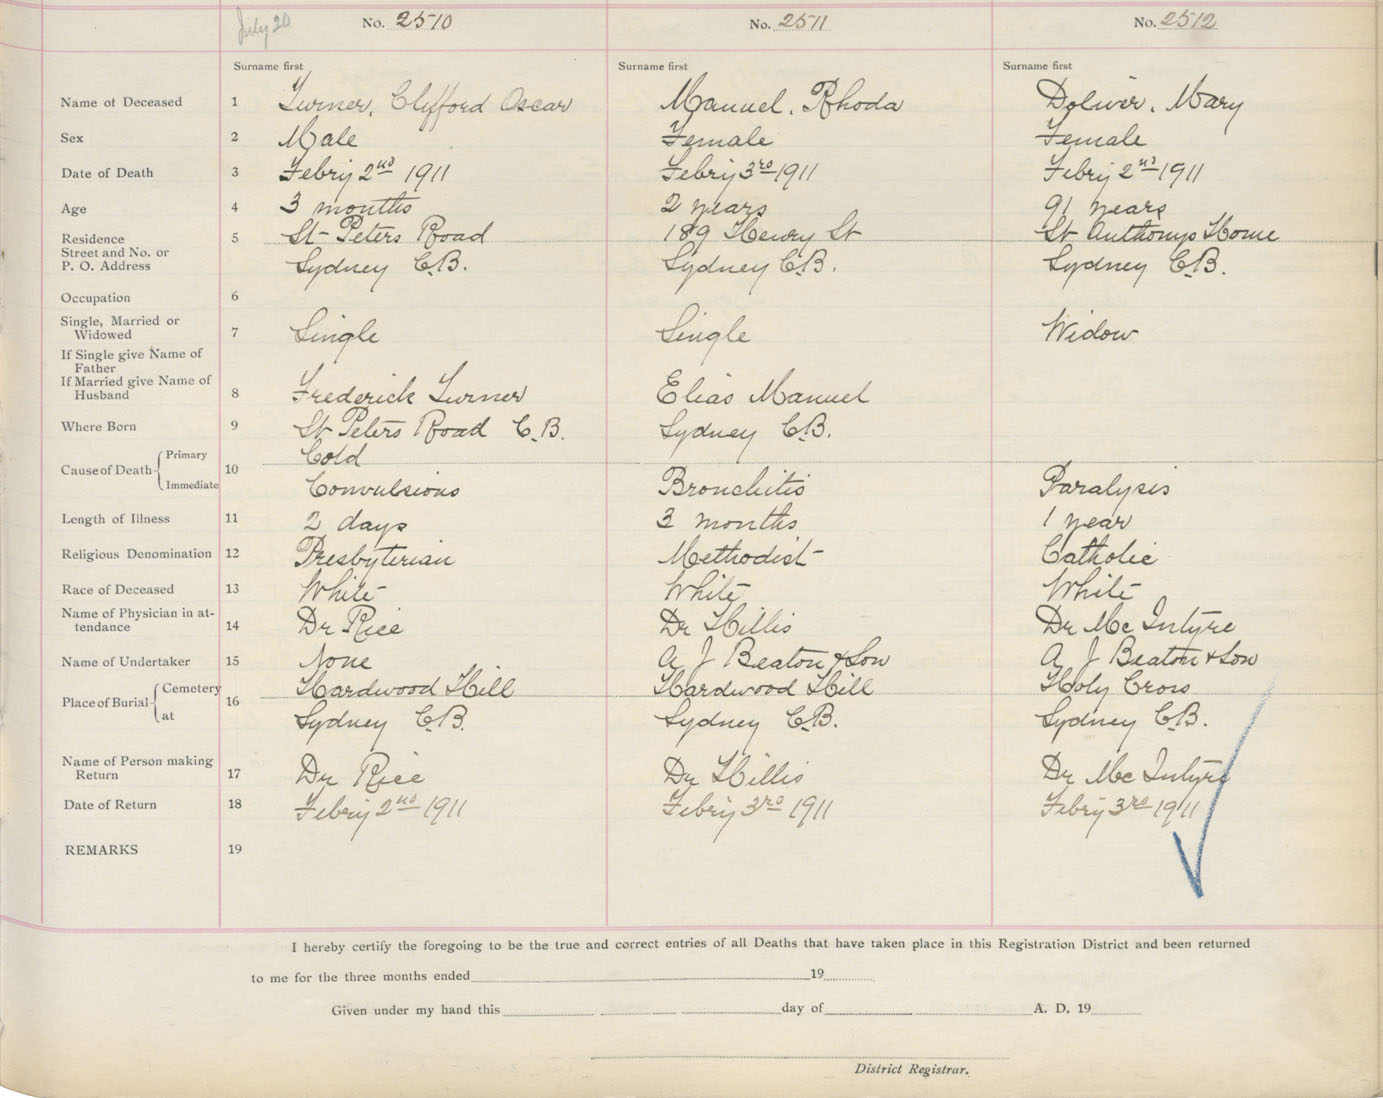 July 20
No. 2510 No. 2511 No. 2512
Surname first Surname first Surname first
Name of Deceased 1 Turner, Clifford Oscar Manuel, Rhoda Doliver, Mary
Sex 2 Male Female Female
Date of Death 3 Febry 2nd 1911 Febry 3rd 1911 Febry 2nd 1911
Age 4 3 months 2 years 91 years
Residence 5 St Peters Road 189 Henry St St Anthonys Home
Street and No. or
P. O. Address Sydney C.B. Sydney C.B. Sydney C.B.
Occupation 6
Single, Married or
Widowed 7 Single Single Widow
If Single give Name of
Father
If Married give Name of
Husband 8 Frederick Turner Elias Manuel
Where Born 9 St Peters Road C.B. Sydney C.B.
Cause of Death Primary 10 Cold
Immediate Convulsions Bronchitis Paralysis
Length of Illness 11 2 days 3 months 1 year
Religious Denomination 12 Presbyterian Methodist Catholic
Race of Deceased 13 White White White
Name of Physician in at-
tendance 14 Dr Rice Dr Hillis Dr Mc Intyre
Name of Undertaker 15 None A J Beaton & Son A J Beaton & Son
Place of Burial Cemetery 16 Hardwood Hill Hardwood Hill Holy Cross
at Sydney C.B. Sydney C.B. Sydney C.B.
Name of Person making
Return 17 Dr Rice Dr Hillis Dr Mc Intyre
Date of Return 18 Febry 2nd 1911 Febry 3rd 1911 Febry 3rd 1911
REMARKS 19
I hereby certify the foregoing to be the true and correct entries of all Deaths that have taken place in this Registration District and been returned
to me for the three months ended 19
Given under my hand this day of A. D. 19
District Registrar.